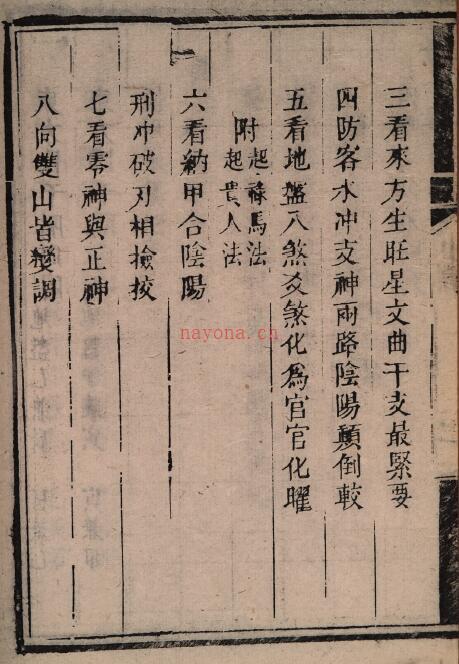 三看來方生旺星文曲干支最緊要
四防客水冲支神兩路陰陽顛倒較
五看地盤八煞爻煞化為官官化曜
附起祿馬法
起貴人法
六看納甲合陰陽
刑冲破刃相撿挍
七看零神與正神
八向雙山皆變調
nayona.cn